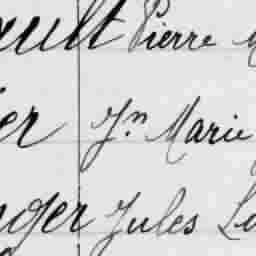 ault Pierre M
er Jn Marie
nger Jules Lo